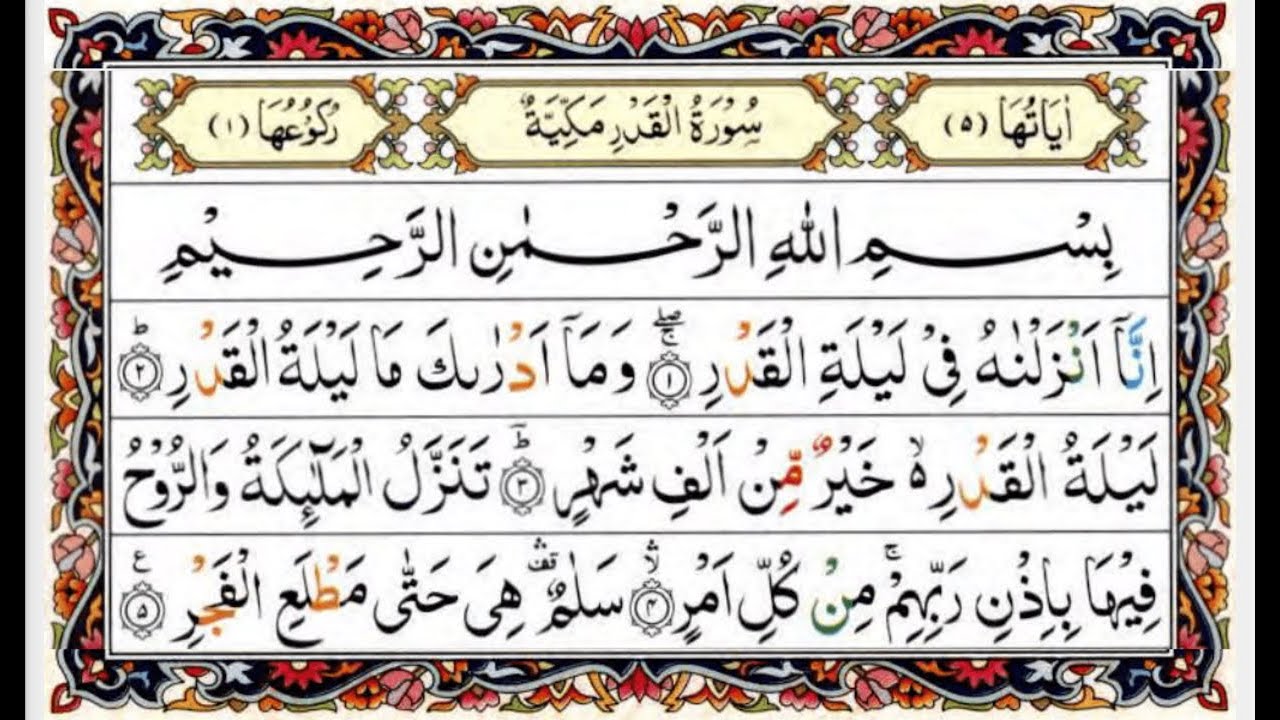 اٰيَاتُهَا (٥) سُوْرَةُ الْقَدْرِ مَكِّيَّةٌ رُكُوْعُهَا (١)
بِسْمِ اللهِ الرَّحْمٰنِ الرَّحِيْمِ
اِنَّآ اَنْزَلْنٰهُ فِيْ لَيْلَةِ الْقَدْرِ ۚۖ ۝١ وَمَآ اَدْرٰىكَ مَا لَيْلَةُ الْقَدْرِ ؕ ۝٢
لَيْلَةُ الْقَدْرِ ۙ٥ خَيْرٌ مِّنْ اَلْفِ شَهْرٍ ؕ ۝٣ تَنَزَّلُ الْمَلٰٓئِكَةُ وَالرُّوْحُ
فِيْهَا بِاِذْنِ رَبِّهِمْ ۚ مِنْ كُلِّ اَمْرٍ ۙ ۝٤ سَلٰمٌ قف هِيَ حَتّٰى مَطْلَعِ الْفَجْرِ ع ۝٥